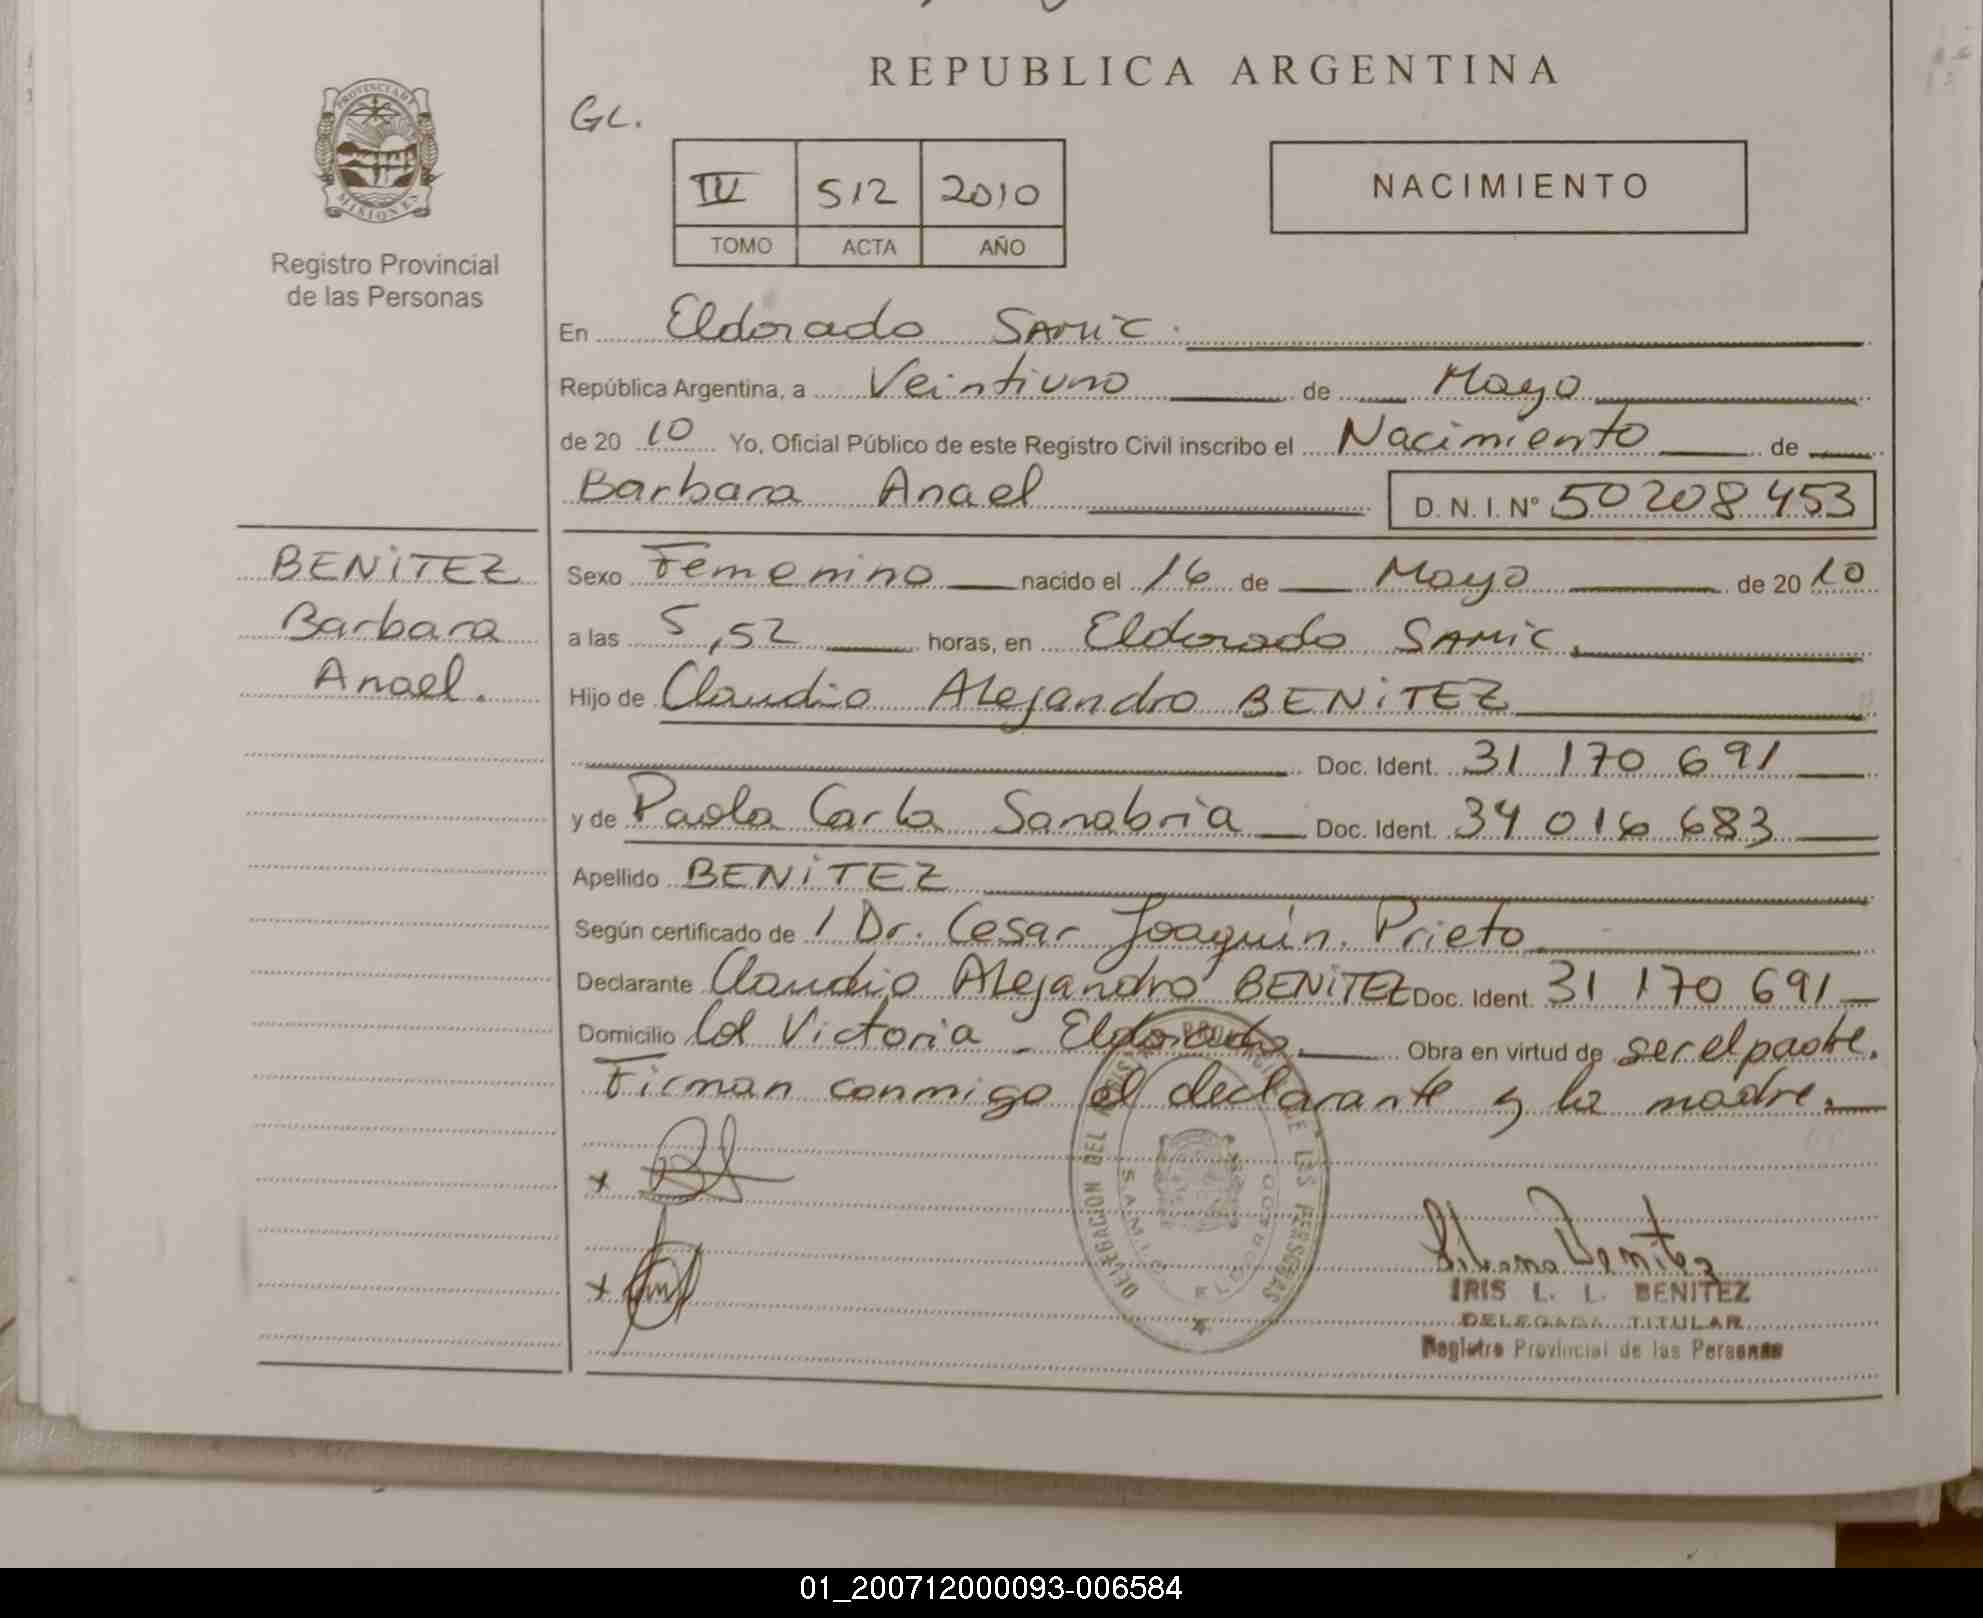 REPUBLICA ARGENTINA
PROVINCIA DE
MISIONES
Registro Provincial
de las Personas
GL.
IV 512 2010
TOMO ACTA AÑO
NACIMIENTO
En Eldorado SAMIC.
República Argentina, a Veintiuno de Mayo
de 2010 Yo, Oficial Público de este Registro Civil inscribo el Nacimiento de
Barbara Anael D.N.I. Nº 50208453
BENITEZ
Barbara
Anael.
Sexo Femenino nacido el 16 de Mayo de 2010
a las 5,52 horas, en Eldorado SAMIC.
Hijo de Claudio Alejandro BENITEZ
Doc. Ident. 31 170 691
y de Paola Carla Sanabria Doc. Ident. 34 016 683
Apellido BENITEZ
Según certificado de / Dr. Cesar Joaquín Prieto
Declarante Claudio Alejandro BENITEZ Doc. Ident. 31 170 691
Domicilio Col Victoria - Eldorado Obra en virtud de ser el padre.
Firman conmigo el declarante y la madre.
DELEGACION DEL DE LAS PERSONAS
SAMIC ELDORADO
IRIS L. L. BENITEZ
DELEGADA TITULAR
Registro Provincial de las Personas
01_200712000093-006584